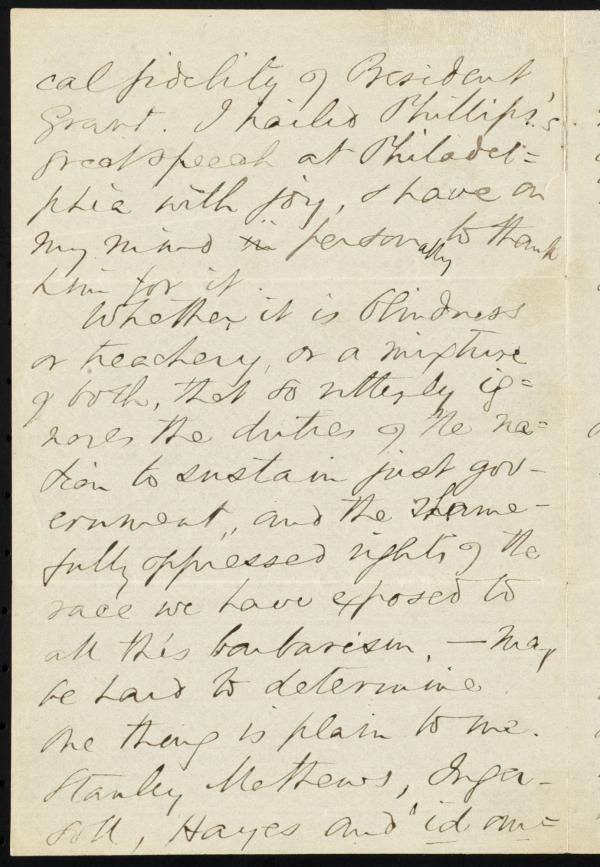 cal fidelity of President
Grant. I hailed Phillips's
great speech at Philadel=
phia with joy, & have on
my mind in personally to thank
him for it.
Whether it is blindness
or treachery, or a mixture
of both, that so utterly ig=
nores the duties of the na=
tion to sustain just gov-
ernment, and the shame-
fully oppressed rights of the
race we have exposed to
all this barbarism, — may
be hard to determine.
One thing is plain to me.
Stanley Mathews, Inger-
soll, Hayes and id om=